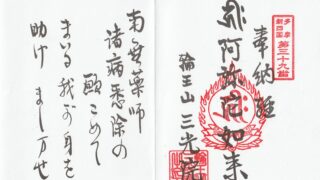 奉納経
阿弥陀如来
輪王山 三光院
多摩
新四国
第三十九番
南無薬師
諸病悉除の
願こめて
まいる我が身を
助けましませ